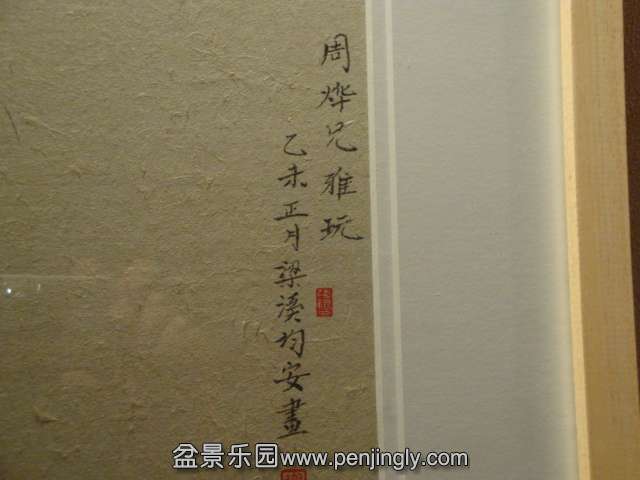 周烨兄雅玩
乙未正月梁溪均安畫
盆景乐园www.penjingly.com